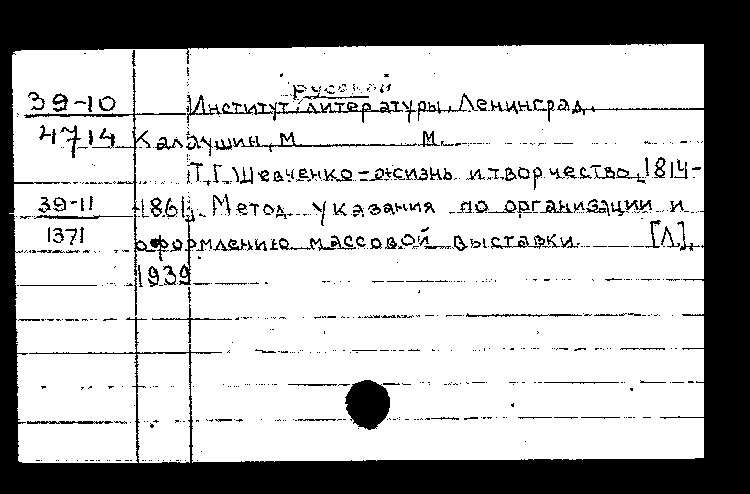 русской
39-10 Институт литературы. Ленинград.
4714 Калаушин, М. М.
Т.Г. Шевченко - жизнь и творчество, 1814-
39-11 1861. Метод. указания по организации и
1371 оформлению массовой выставки. [Л.],
1939